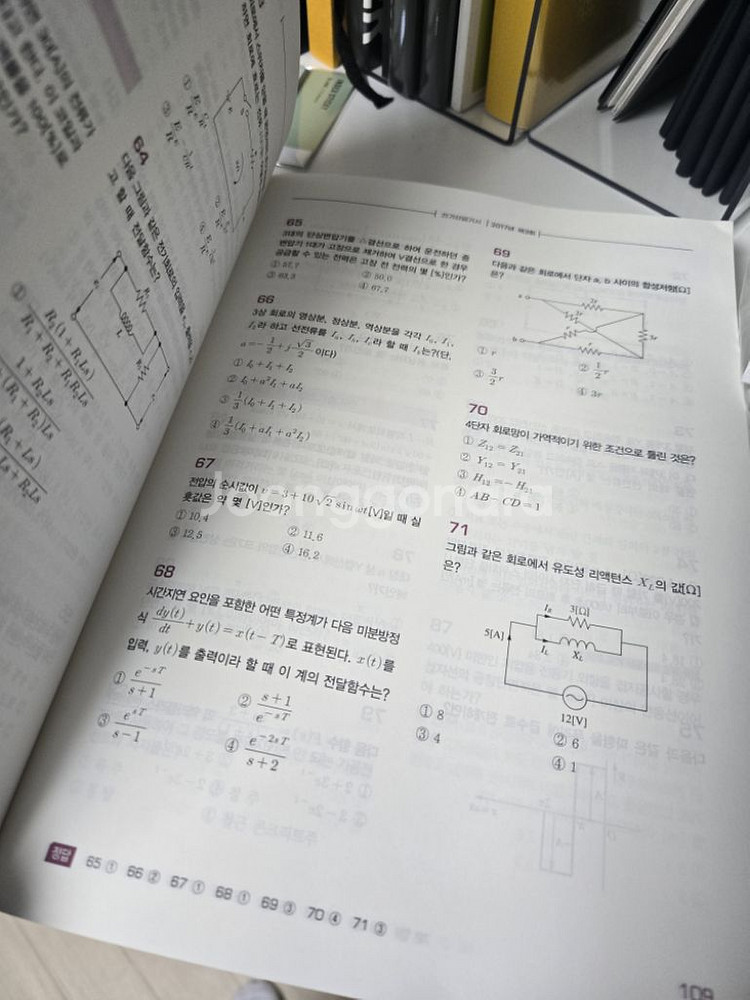 64
다음 그림과 같은
고 할 때 전달함수는?
전기산업기사 | 2017년 제3회
65
3대의 단상변압기를 △결선으로 하여 운전하던 중
변압기 1대가 고장으로 제거하여 V결선으로 한 경우
공급할 수 있는 전력은 고장 전 전력의 몇 [%]인가?
① 57.7 ② 50.0
③ 63.3 ④ 67.7
66
3상 회로의 영상분, 정상분, 역상분을 각각 I₀, I₁,
I₂라 하고 선전류를 Iₐ, I_b, I_c라 할 때 I_b는?(단,
a = -1/2 + j√3/2 이다)
① I₀+I₁+I₂
② I₀+a²I₁+aI₂
③ 1/3(I₀+I₁+I₂)
④ 1/3(I₀+aI₁+a²I₂)
67
전압의 순시값이 v=3+10√2 sin ωt[V]일 때 실
횻값은 약 몇 [V]인가?
① 10.4 ② 11.6
③ 12.5 ④ 16.2
68
시간지연 요인을 포함한 어떤 특정계가 다음 미분방정
식 dy(t)/dt + y(t) = x(t-T)로 표현된다. x(t)를
입력, y(t)를 출력이라 할 때 이 계의 전달함수는?
① e^(-sT)/(s+1) ② (s+1)/e^(-sT)
③ e^(sT)/(s-1) ④ e^(-2sT)/(s+2)
69
다음과 같은 회로에서 단자 a, b 사이의 합성저항[Ω]
은?
① r ② 1/2 r
③ 3/2 r ④ 3r
70
4단자 회로망이 가역적이기 위한 조건으로 틀린 것은?
① Z₁₂ = Z₂₁
② Y₁₂ = Y₂₁
③ H₁₂ = -H₂₁
④ AB-CD=1
71
그림과 같은 회로에서 유도성 리액턴스 X_L의 값[Ω]
은?
I_R 3[Ω]
5[A]
I_L X_L
12[V]
① 8 ② 6
③ 4 ④ 1
정답 65 ① 66 ② 67 ① 68 ① 69 ③ 70 ④ 71 ③
109
Joonggonara